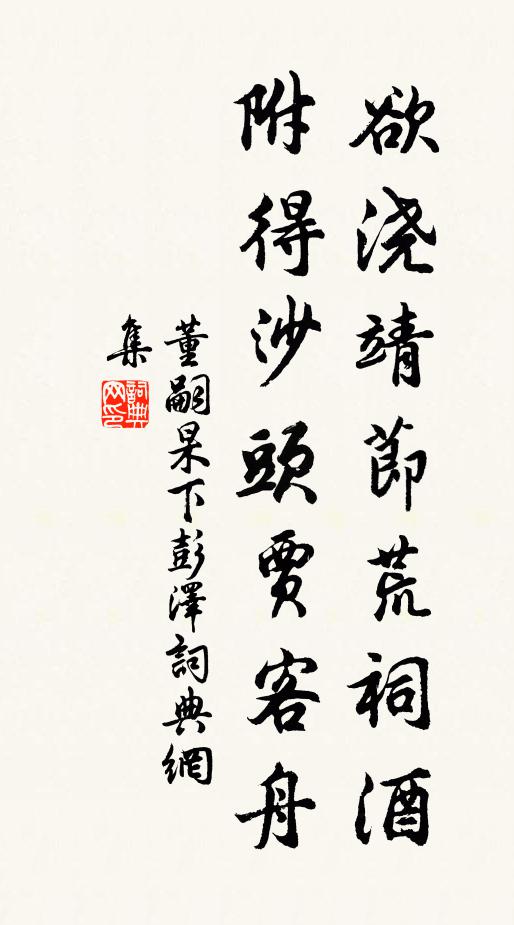 欲浇靖節荒祠酒
附得沙頭賈客舟
董嗣杲下彭澤詞典網
集
詞典
网印